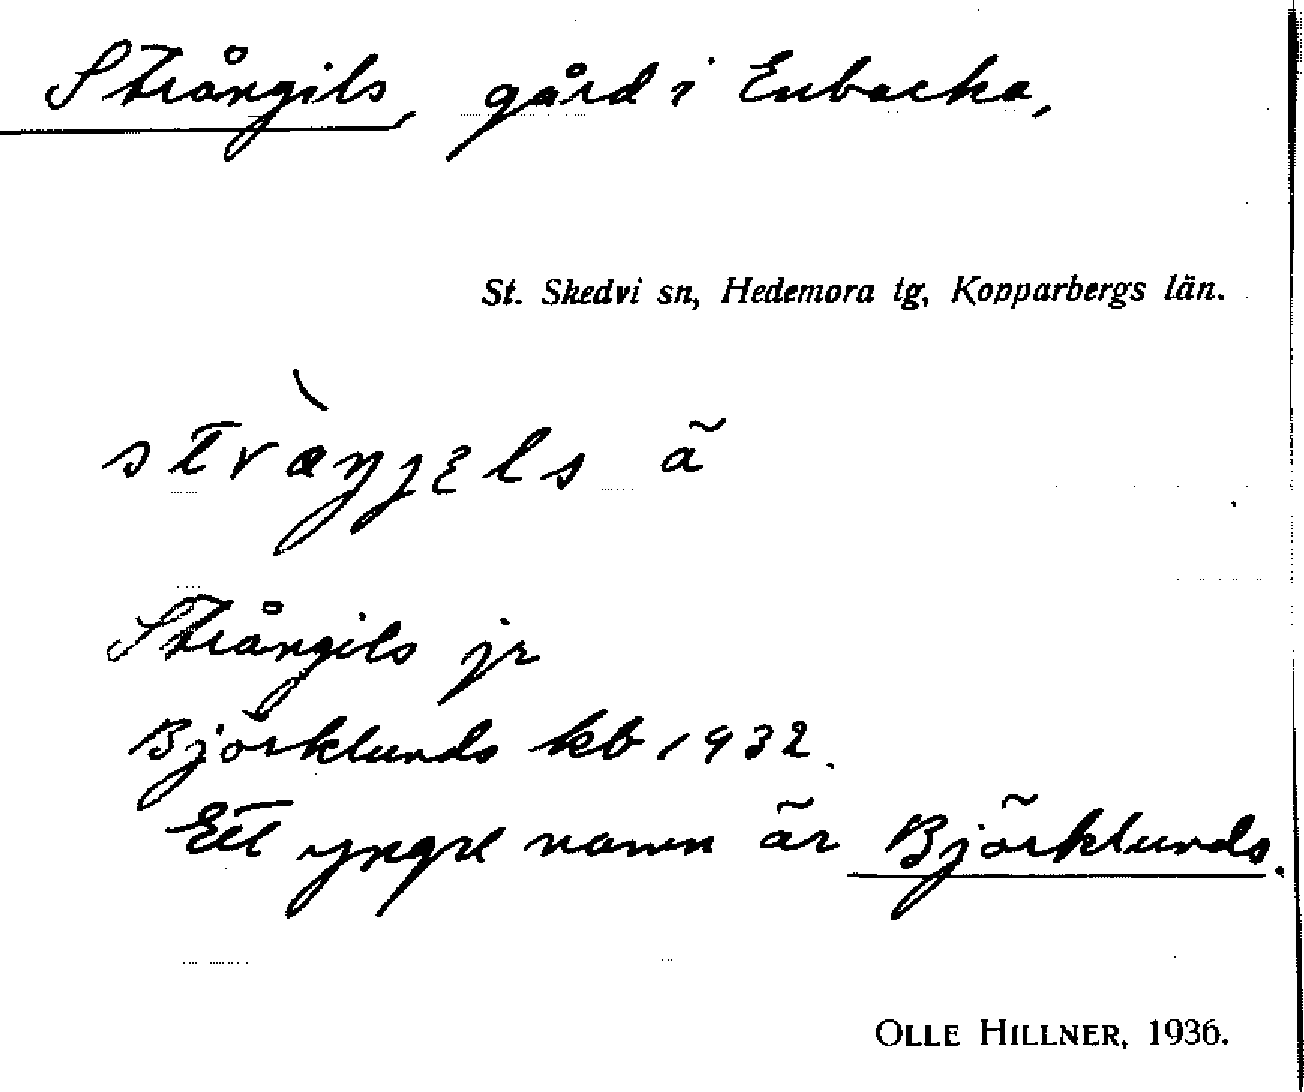 Strångils, gård i Enbacka,
St. Skedvi sn, Hedemora tg, Kopparbergs län.
stràŋjɛls ã
Strångils jr
Björklunds kb 1932.
Ett yngre namn är Björklunds.
OLLE HILLNER, 1936.